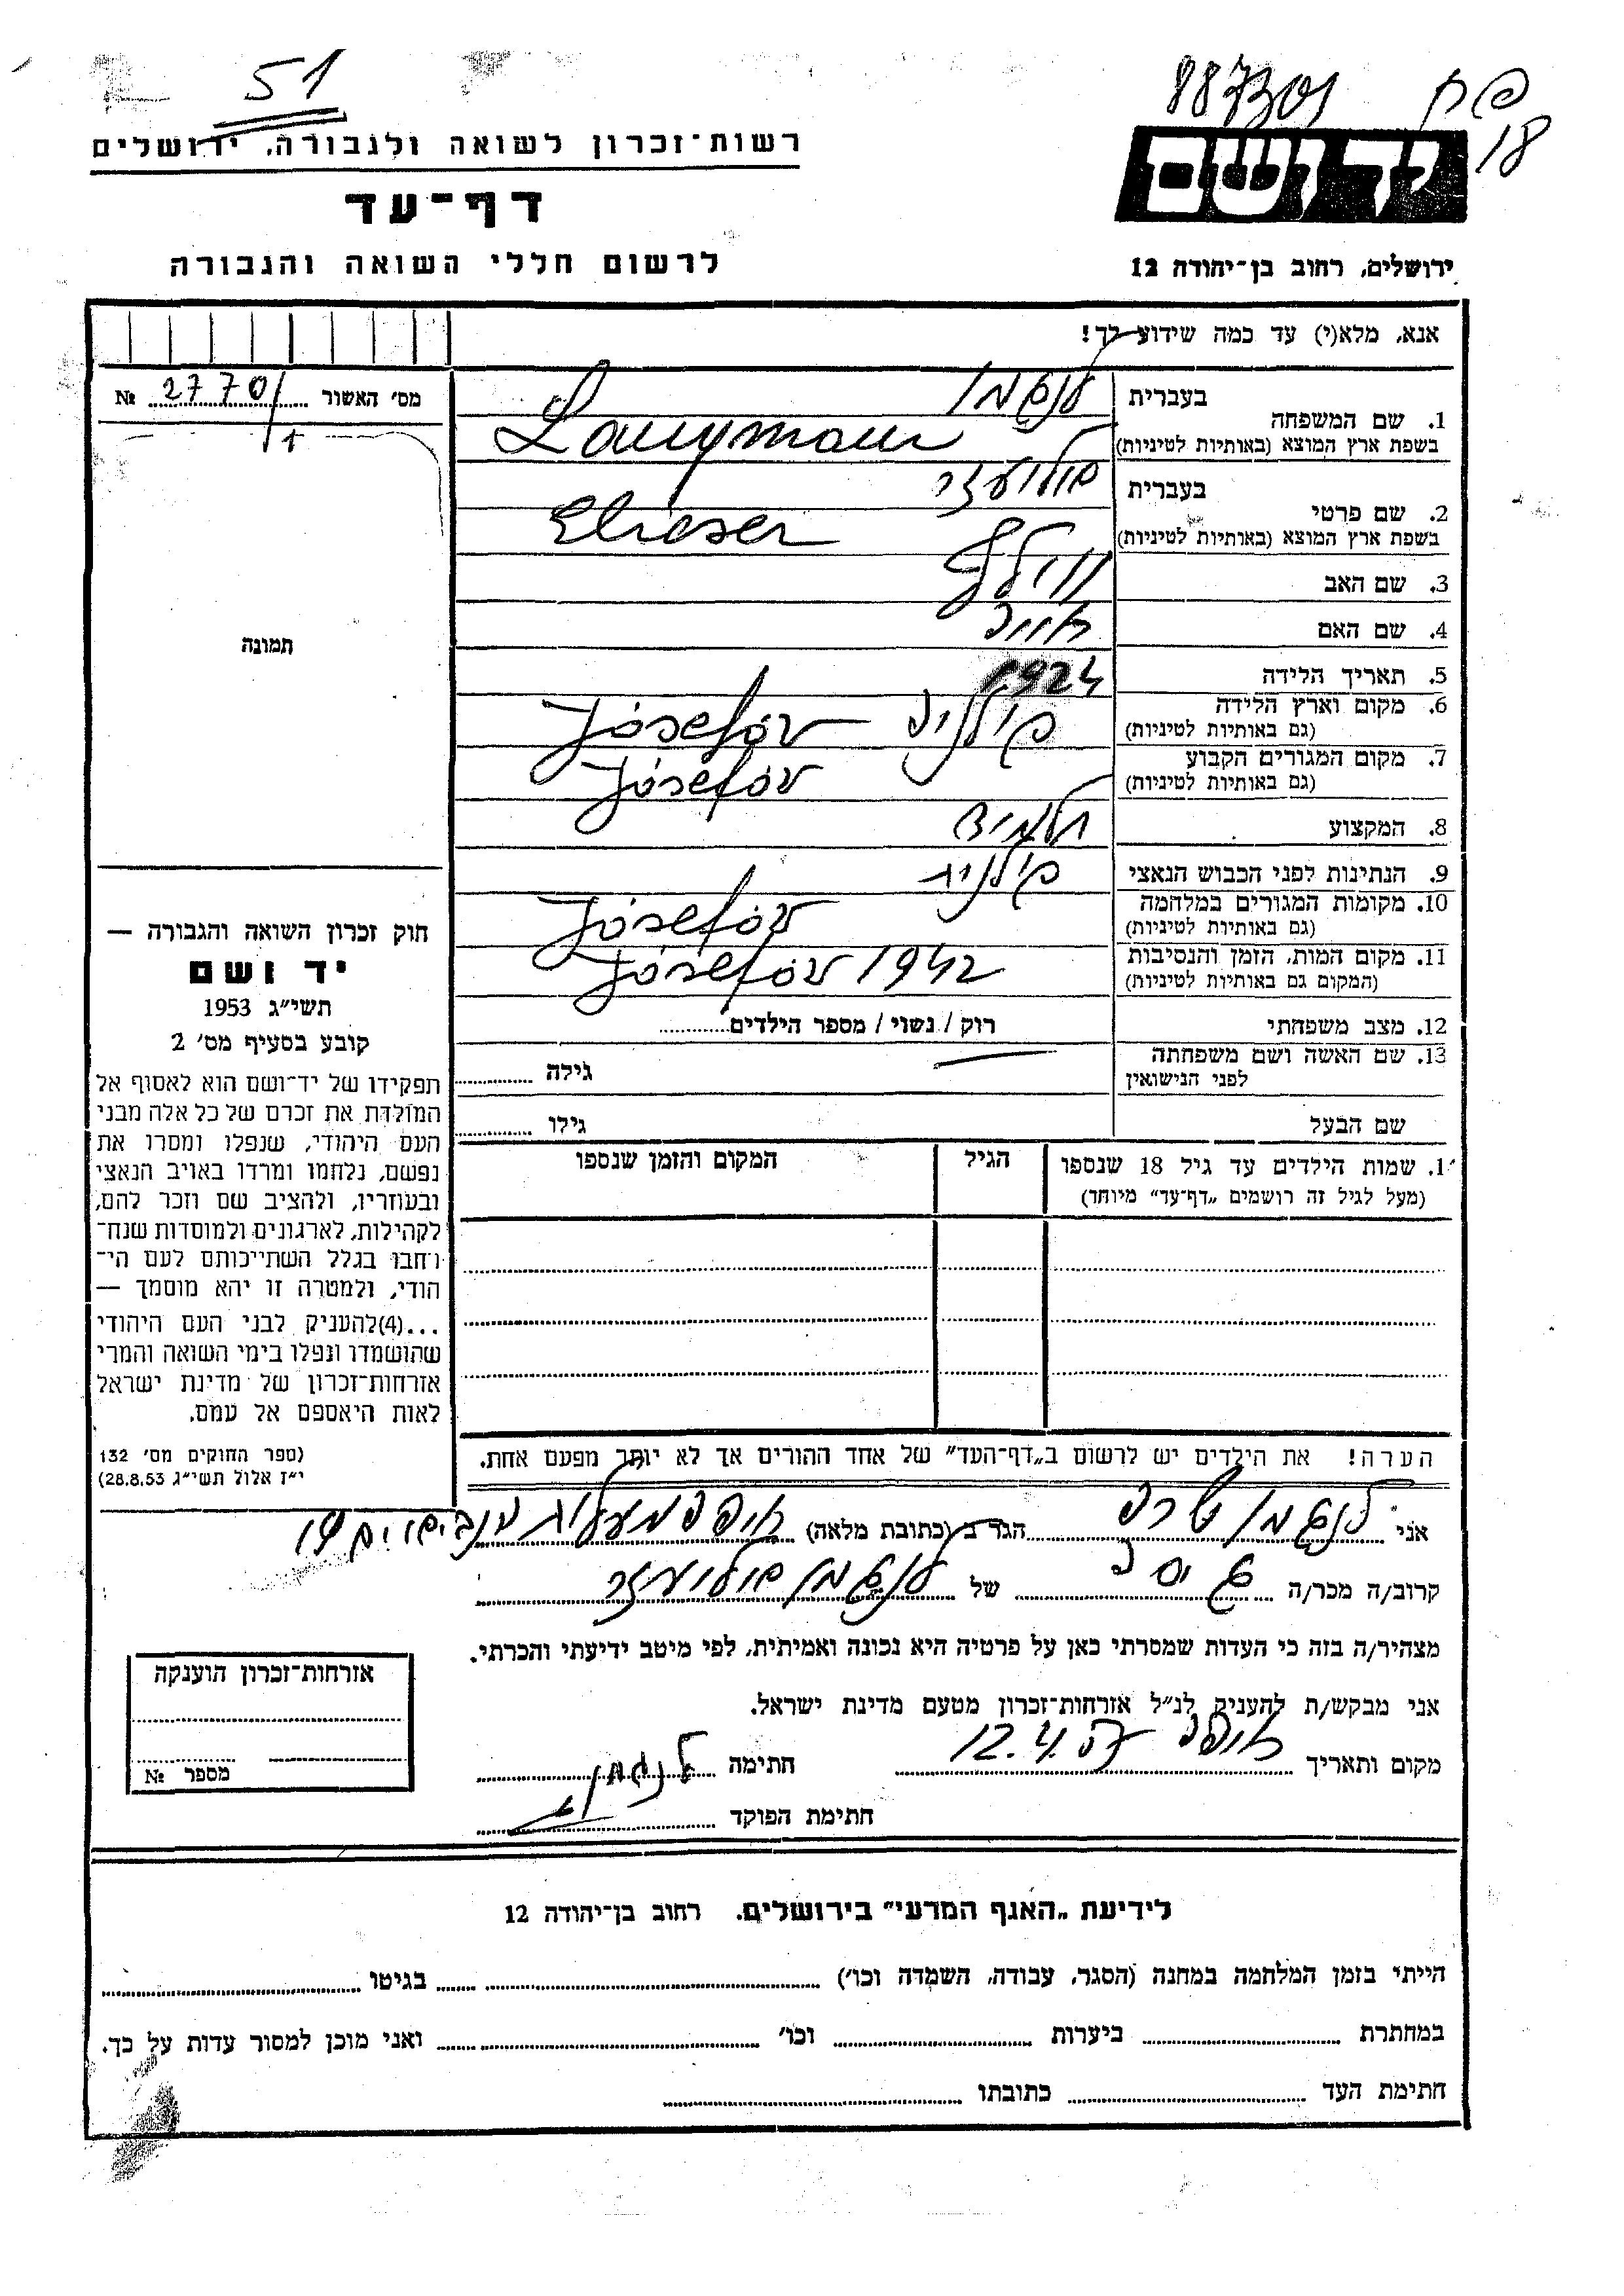 51
887301
פח
18
רשות־זכרון לשואה ולגבורה, ירושלים
דף־עד
לרשום חללי השואה והגבורה
ידושם
ירושלים, רחוב בן־יהודה 12
אנא, מלא(י) עד כמה שידוע לך!
מס׳ האשור № 2770/1
תמונה
1. שם המשפחה בעברית לנגמן
בשפת ארץ המוצא (באותיות לטיניות) Langman
2. שם פרטי בעברית אליעזר
בשפת ארץ המוצא (באותיות לטיניות) Elieser
3. שם האב וולף
4. שם האם
5. תאריך הלידה 1924
6. מקום וארץ הלידה (גם באותיות לטיניות) פולניה Józefów
7. מקום המגורים הקבוע (גם באותיות לטיניות) Józefów
8. המקצוע תלמיד
9. הנתינות לפני הכבוש הנאצי פולנית
10. מקומות המגורים במלחמה (גם באותיות לטיניות) Józefów
11. מקום המות, הזמן והנסיבות (המקום גם באותיות לטיניות) Józefów 1942
12. מצב משפחתי רוק / נשוי / מספר הילדים
13. שם האשה ושם משפחתה לפני הנישואין גילה
שם הבעל גילו
1. שמות הילדים עד גיל 18 שנספו
(מעל לגיל זה רושמים „דף־עד״ מיוחד)
הגיל
המקום והזמן שנספו
חוק זכרון השואה והגבורה —
יד ושם
תשי״ג 1953
קובע בסעיף מס׳ 2
תפקידו של יד־ושם הוא לאסוף אל
המולדת את זכרם של כל אלה מבני
העם היהודי, שנפלו ומסרו את
נפשם, נלחמו ומרדו באויב הנאצי
ובעוזריו, ולהציב שם וזכר להם,
לקהילות, לארגונים ולמוסדות שנח־
רחבו בגלל השתייכותם לעם הי־
הודי, ולמטרה זו יהא מוסמך —
...(4)להעניק לבני העם היהודי
שהושמדו ונפלו בימי השואה והמרי
אזרחות־זכרון של מדינת ישראל
לאות היאספם אל עמם.
(ספר החוקים מס׳ 132
י״ז אלול תשי״ג 28.8.53)
הערה! את הילדים יש לרשום ב„דף־העד״ של אחד ההורים אך לא יותר מפעם אחת.
אני לנגמן שרה הגר ב (כתובת מלאה) חיפה
קרוב/ה מכר/ה גיסה של לנגמן אליעזר
מצהיר/ה בזה כי העדות שמסרתי כאן על פרטיה היא נכונה ואמיתית, לפי מיטב ידיעתי והכרתי.
אני מבקש/ת להעניק לנ״ל אזרחות־זכרון מטעם מדינת ישראל.
מקום ותאריך חיפה 12.4.57 חתימה לנגמן
חתימת הפוקד
אזרחות־זכרון הוענקה
מספר №
לידיעת „האגף המדעי״ בירושלים. רחוב בן־יהודה 12
הייתי בזמן המלחמה במחנה (הסגר, עבודה, השמדה וכו׳) בגיטו
במחתרת ביערות וכו׳ ואני מוכן למסור עדות על כך.
חתימת העד כתובתו